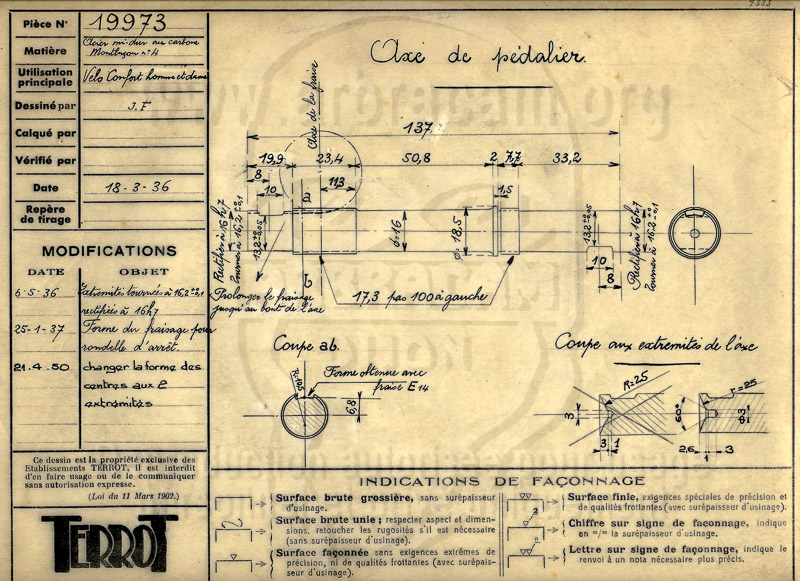 Pièce N° 19973
Matière Acier mi-dur au carbone
Montluçon n°4
Utilisation principale Vélo Confort homme et dame
Dessiné par J.F
Calqué par
Vérifié par
Date 18-3-36
Repère de tirage
MODIFICATIONS
DATE OBJET
6-5-36 Extrémités tournées à 16,2 ±0,1
rectifiées à 16h7
25-1-37 Forme du fraisage pour
rondelle d'arrêt.
21.4.50 changer la forme des
centres aux 2
extrémités
Ce dessin est la propriété exclusive des
Etablissements TERROT, il est interdit
d'en faire usage ou de le communiquer
sans autorisation expresse.
(Loi du 11 Mars 1902.)
TERROT
Axe de pédalier.
Axe de la fraise
137
19,9 23,4 50,8 2 7,7 33,2
8
10
11,3
1,5
Rectifiés à 16h7
Tourner à 16,2
13,2
a
b
ø=16
ø=18,5
13,2
10
8
Rectifiés à 16h7
Tourner à 16,2
Prolonger le fraisage
jusqu'au bout de l'axe
17,3 pas 100 à gauche
Coupe ab.
R=10,5
Forme obtenue avec
fraise E14
6,8
Coupe aux extrémités de l'axe
R=25
r=25
3
60°
3 1
2,6 3
INDICATIONS DE FAÇONNAGE
Surface brute grossière, sans surépaisseur
d'usinage.
Surface brute unie ; respecter aspect et dimen-
sions, retoucher les rugosités s'il est nécessaire
(sans surépaisseur d'usinage).
Surface façonnée sans exigences extrêmes de
précision, ni de qualités frottantes (avec surépais-
seur d'usinage).
Surface finie, exigences spéciales de précision et
de qualités frottantes (avec surépaisseur d'usinage).
2
Chiffre sur signe de façonnage, indique
en m/m la surépaisseur d'usinage.
n
Lettre sur signe de façonnage, indique le
renvoi à une nota nécessaire plus précis.